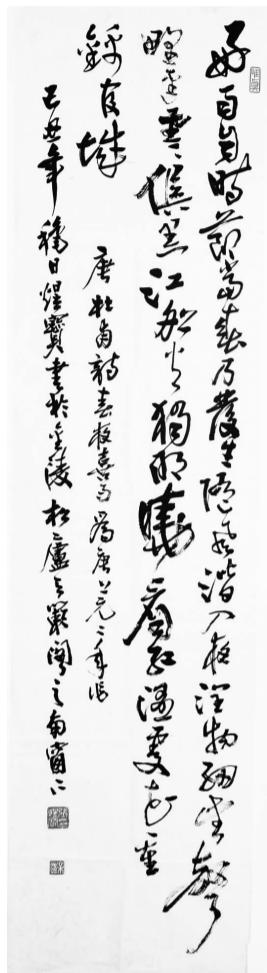 好雨知时節當春乃發生随風潜入夜潤物細無聲
野逕雲俱黑江船火獨明曉看紅濕處花重
錦官城
唐杜甫詩春夜喜雨為唐上元二年作
己丑年 日煌寶書於金陵松廬 之南窗下